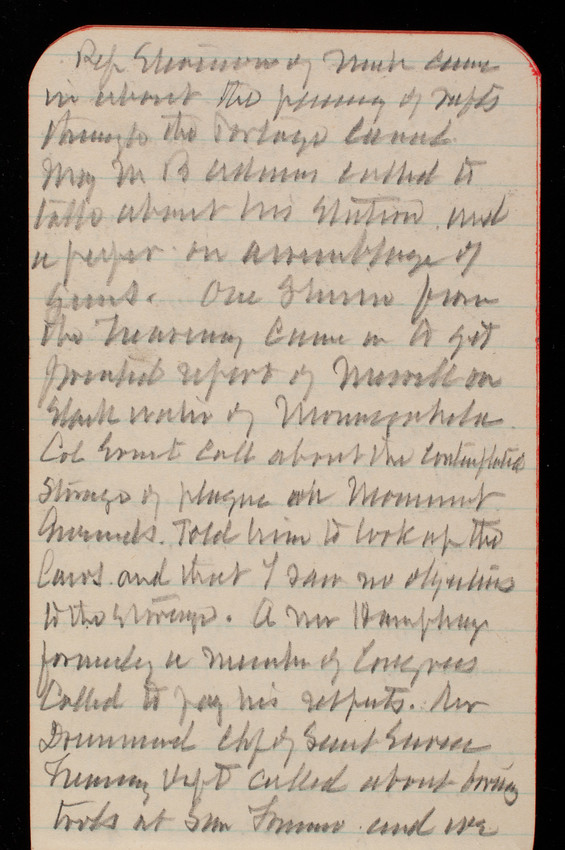 Rep of Mich came
in about the passing of rafts
through the Portage Canal
Maj M B Adams called to
talk about his station and
a paper on assemblage of
guns. One from
the Treasury came in to get
printed report of Merrill on
Slack water of Monongahela.
Col Ernst call about the contemplated
storage of plague on Monument
Grounds. Told him to look up the
Laws and that I saw no objections
to the storage. A Mr Humphrey
formerly a member of Congress
Called to pay his respects. Mr
Drummond Chf of Secret Service
Treasury Dept called about boring
tools at San Franco and we